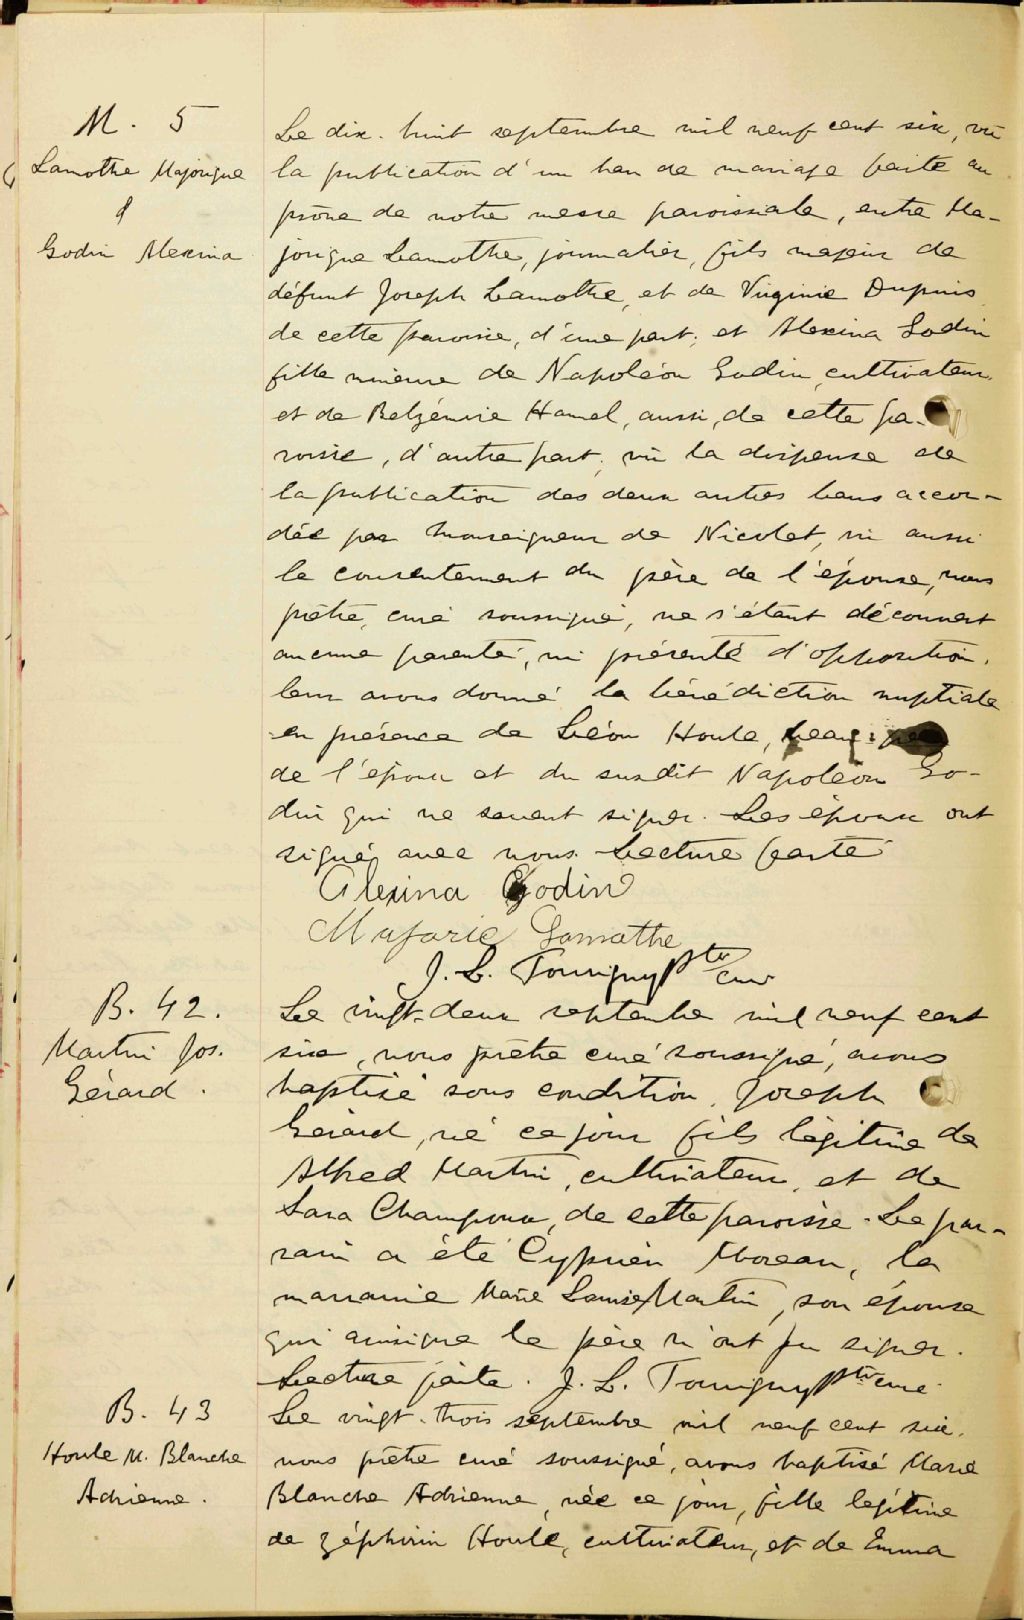 M. 5
Lamothe Majorique
&
Godin Alexina
Le dix-huit septembre mil neuf cent six, vu
la publication d'un ban de mariage faite au
prône de notre messe paroissiale, entre Ma-
jorique Lamothe, journalier, fils majeur de
défunt Joseph Lamothe, et de Virginie Dupuis
de cette paroisse, d'une part; et Alexina Godin
fille mineure de Napoléon Godin, cultivateur,
et de Belzémire Hamel, aussi, de cette pa-
roisse, d'autre part; vu la dispense de
la publication des deux autres bans accor-
dée par Monseigneur de Nicolet, vu aussi
le consentement du père de l'épouse, nous
prêtre, curé soussigné, ne s'étant découvert
aucune parenté, ni présenté d'opposition,
leur avons donné la bénédiction nuptiale
en présence de Léon Houle, beau-père
de l'époux et du susdit Napoléon Go-
din qui ne savent signer. Les époux ont
signé avec nous. Lecture faite
Alexina Godin
Majoric Lamothe
J. L. Tourigny Ptre curé
B. 42.
Martin Jos.
Gérard.
Le vingt-deux septembre mil neuf cent
six, nous prêtre curé soussigné, avons
baptisé sous condition, Joseph
Gérard, né ce jour fils légitime de
Alfred Martin, cultivateur, et de
Sara Champoux, de cette paroisse. Le par-
rain a été Cyprien Moreau, la
marraine Marie Louise Martin, son épouse
qui ainsique le père n'ont pu signer.
Lecture faite. J. L. Tourigny Ptre curé
B. 43
Houle M. Blanche
Adrienne.
Le vingt-trois septembre mil neuf cent six,
nous prêtre curé soussigné, avons baptisé Marie
Blanche Adrienne, née ce jour, fille légitime
de Zéphirin Houle, cultivateur, et de Emma